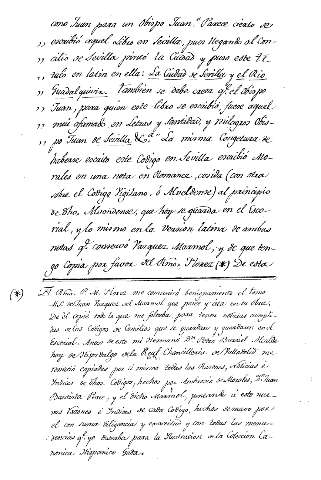 como Juan para un Obispo Juan." Parece cierto se
,, escribió aquel Libro en Sevilla, pues llegando al Con-
,, cilio de Sevilla pintó la Ciudad y puso este tí-
,, tulo en latin en ella: La Ciudad de Sevilla y el Rio
,, Guadalquivir. Tambien se debe creer q.e el Obispo
,, Juan, para quien este Libro se escribió, fuese aquel
,, mui afamado en Letras y Santidad, y milagros Obis-
,, po Juan de Sevilla &.a" La misma Congetura de
haberse escrito este Codigo en Sevilla escribió Mo-
rales en una nota en Romance, cosida (con otra
sobre el Codigo Vigilano, ó Alveldense) al principio
de dho. Emilianense, que hoy se guarda en el Esco-
rial, y lo mismo en la version latina de ambas
notas q.e corrigió Vazquez Marmol, y de que ten-
go Copia por favor del Rmo. Florez (*) De esta
(*) El Rmo. P. M. Florez me comunicó benignamente el tomo
M.S. de Juan Vazquez del Marmol que posee y cita en su obra;
De él copié todo lo que me pareció para tener noticias cumpli-
das de los Codigos de Concilios que se guardan y guardaban en el
Escorial. Antes de esto mi Hermano D.n Pedro Burriel Alcalde
hoy de Hijosdalgo de la Real Chancilleria de Valladolid me
remitió copiados por si mismo todas las Razones, Noticias e
Indices de dhos. Codigos, hechos por Ambrosio de Morales, Juan
Bautista Perez, y el dicho Marmol, juntando á esto nue-
vas Razones é Indices de cada Codigo, hechas de nuevo por
el con suma diligencia y exactitud y con todas las menu-
dencias q.e yo deseaba para la Ilustracion de la Coleccion Ca-
nonica Hispanica Goda.